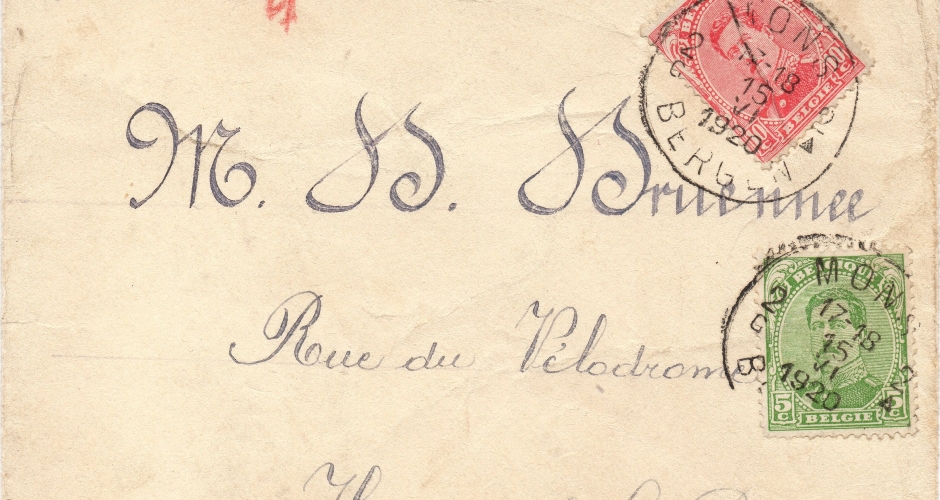 M. D. Bruennee
Rue du Vélodrome
MONS
17-18
15
VI
1920
BERGEN
BELGIE
BELGIQUE
MONS
17-18
15
VI
1920
B
5c 5c
BELGIE